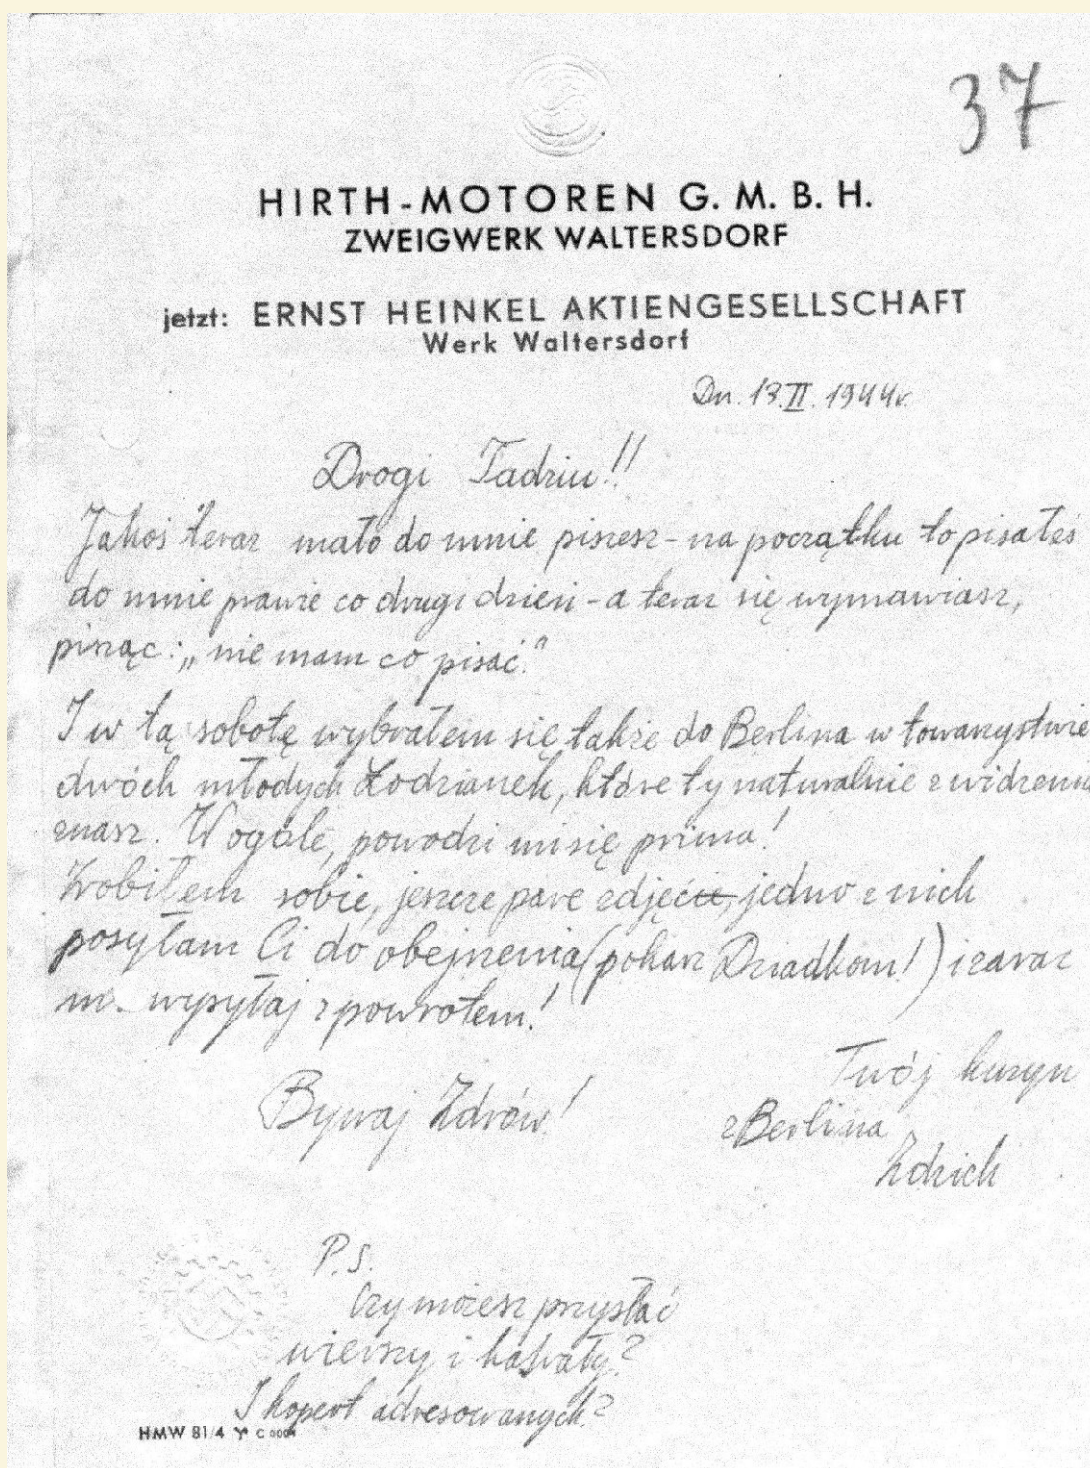 37
HIRTH-MOTOREN G. M. B. H.
ZWEIGWERK WALTERSDORF
jetzt: ERNST HEINKEL AKTIENGESELLSCHAFT
Werk Waltersdorf
Dn. 13.II. 1944r.
Drogi Tadziu!!
Jakoś teraz mało do mnie piszesz - na początku to pisałeś
do mnie prawie co drugi dzień - a teraz się wymawiasz,
pisząc: „nie mam co pisać."
I w tą sobotę wybrałem się także do Berlina w towarzystwie
dwóch młodych Łodzianek, które ty naturalnie z widzenia
znasz. Wogóle, powodzi mi się prima!
Zrobiłem sobie, jeszcze pare zdjęć, jedno z nich
posyłam Ci do obejrzenia (pokaż Dziadkom!) i zaraz
wysyłaj z powrotem!
Twój kuzyn
Bywaj Zdrów!
z Berlina
Zdzich
P.S.
Czy możesz przysłać
wierszy i kawały?
I kopert adresowanych?
HMW 81/4